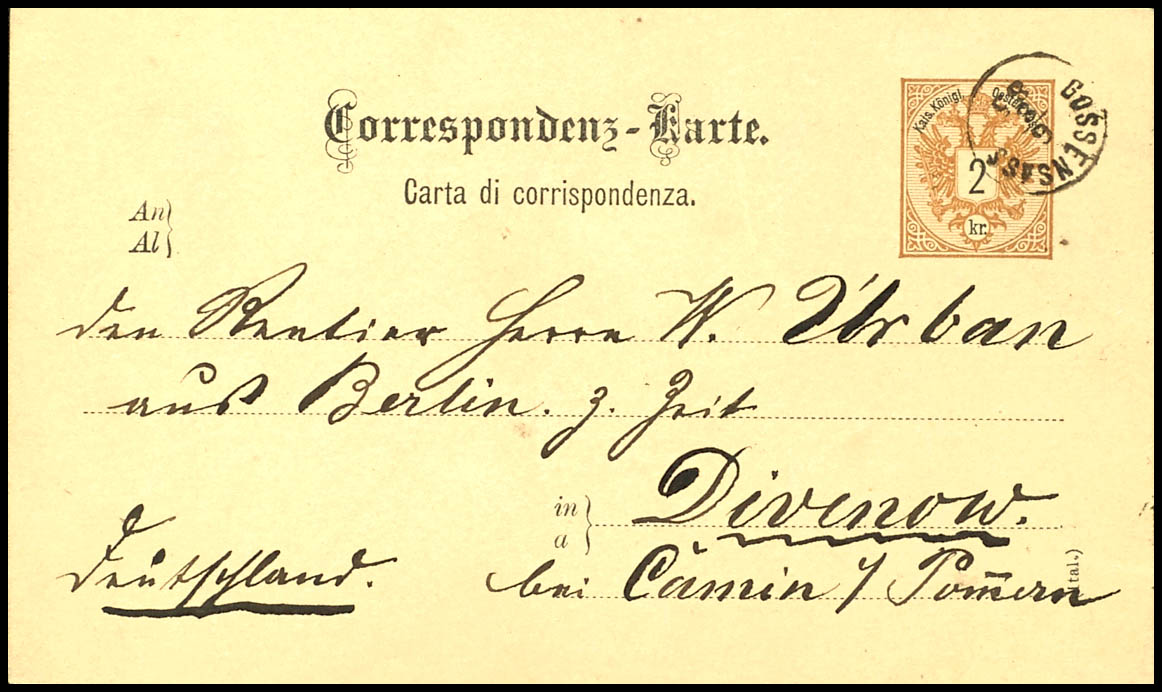 Correspondenz-Karte.
Carta di corrispondenza.
Kais. Königl.
2
kr.
GOSSENSASS
An
Al
den Rentier Herrn W. Urban
aus Berlin. z. Zeit
in
a
Divenow.
Deutschland.
bei Cámin i/ Pom̅ern
(Ital.)